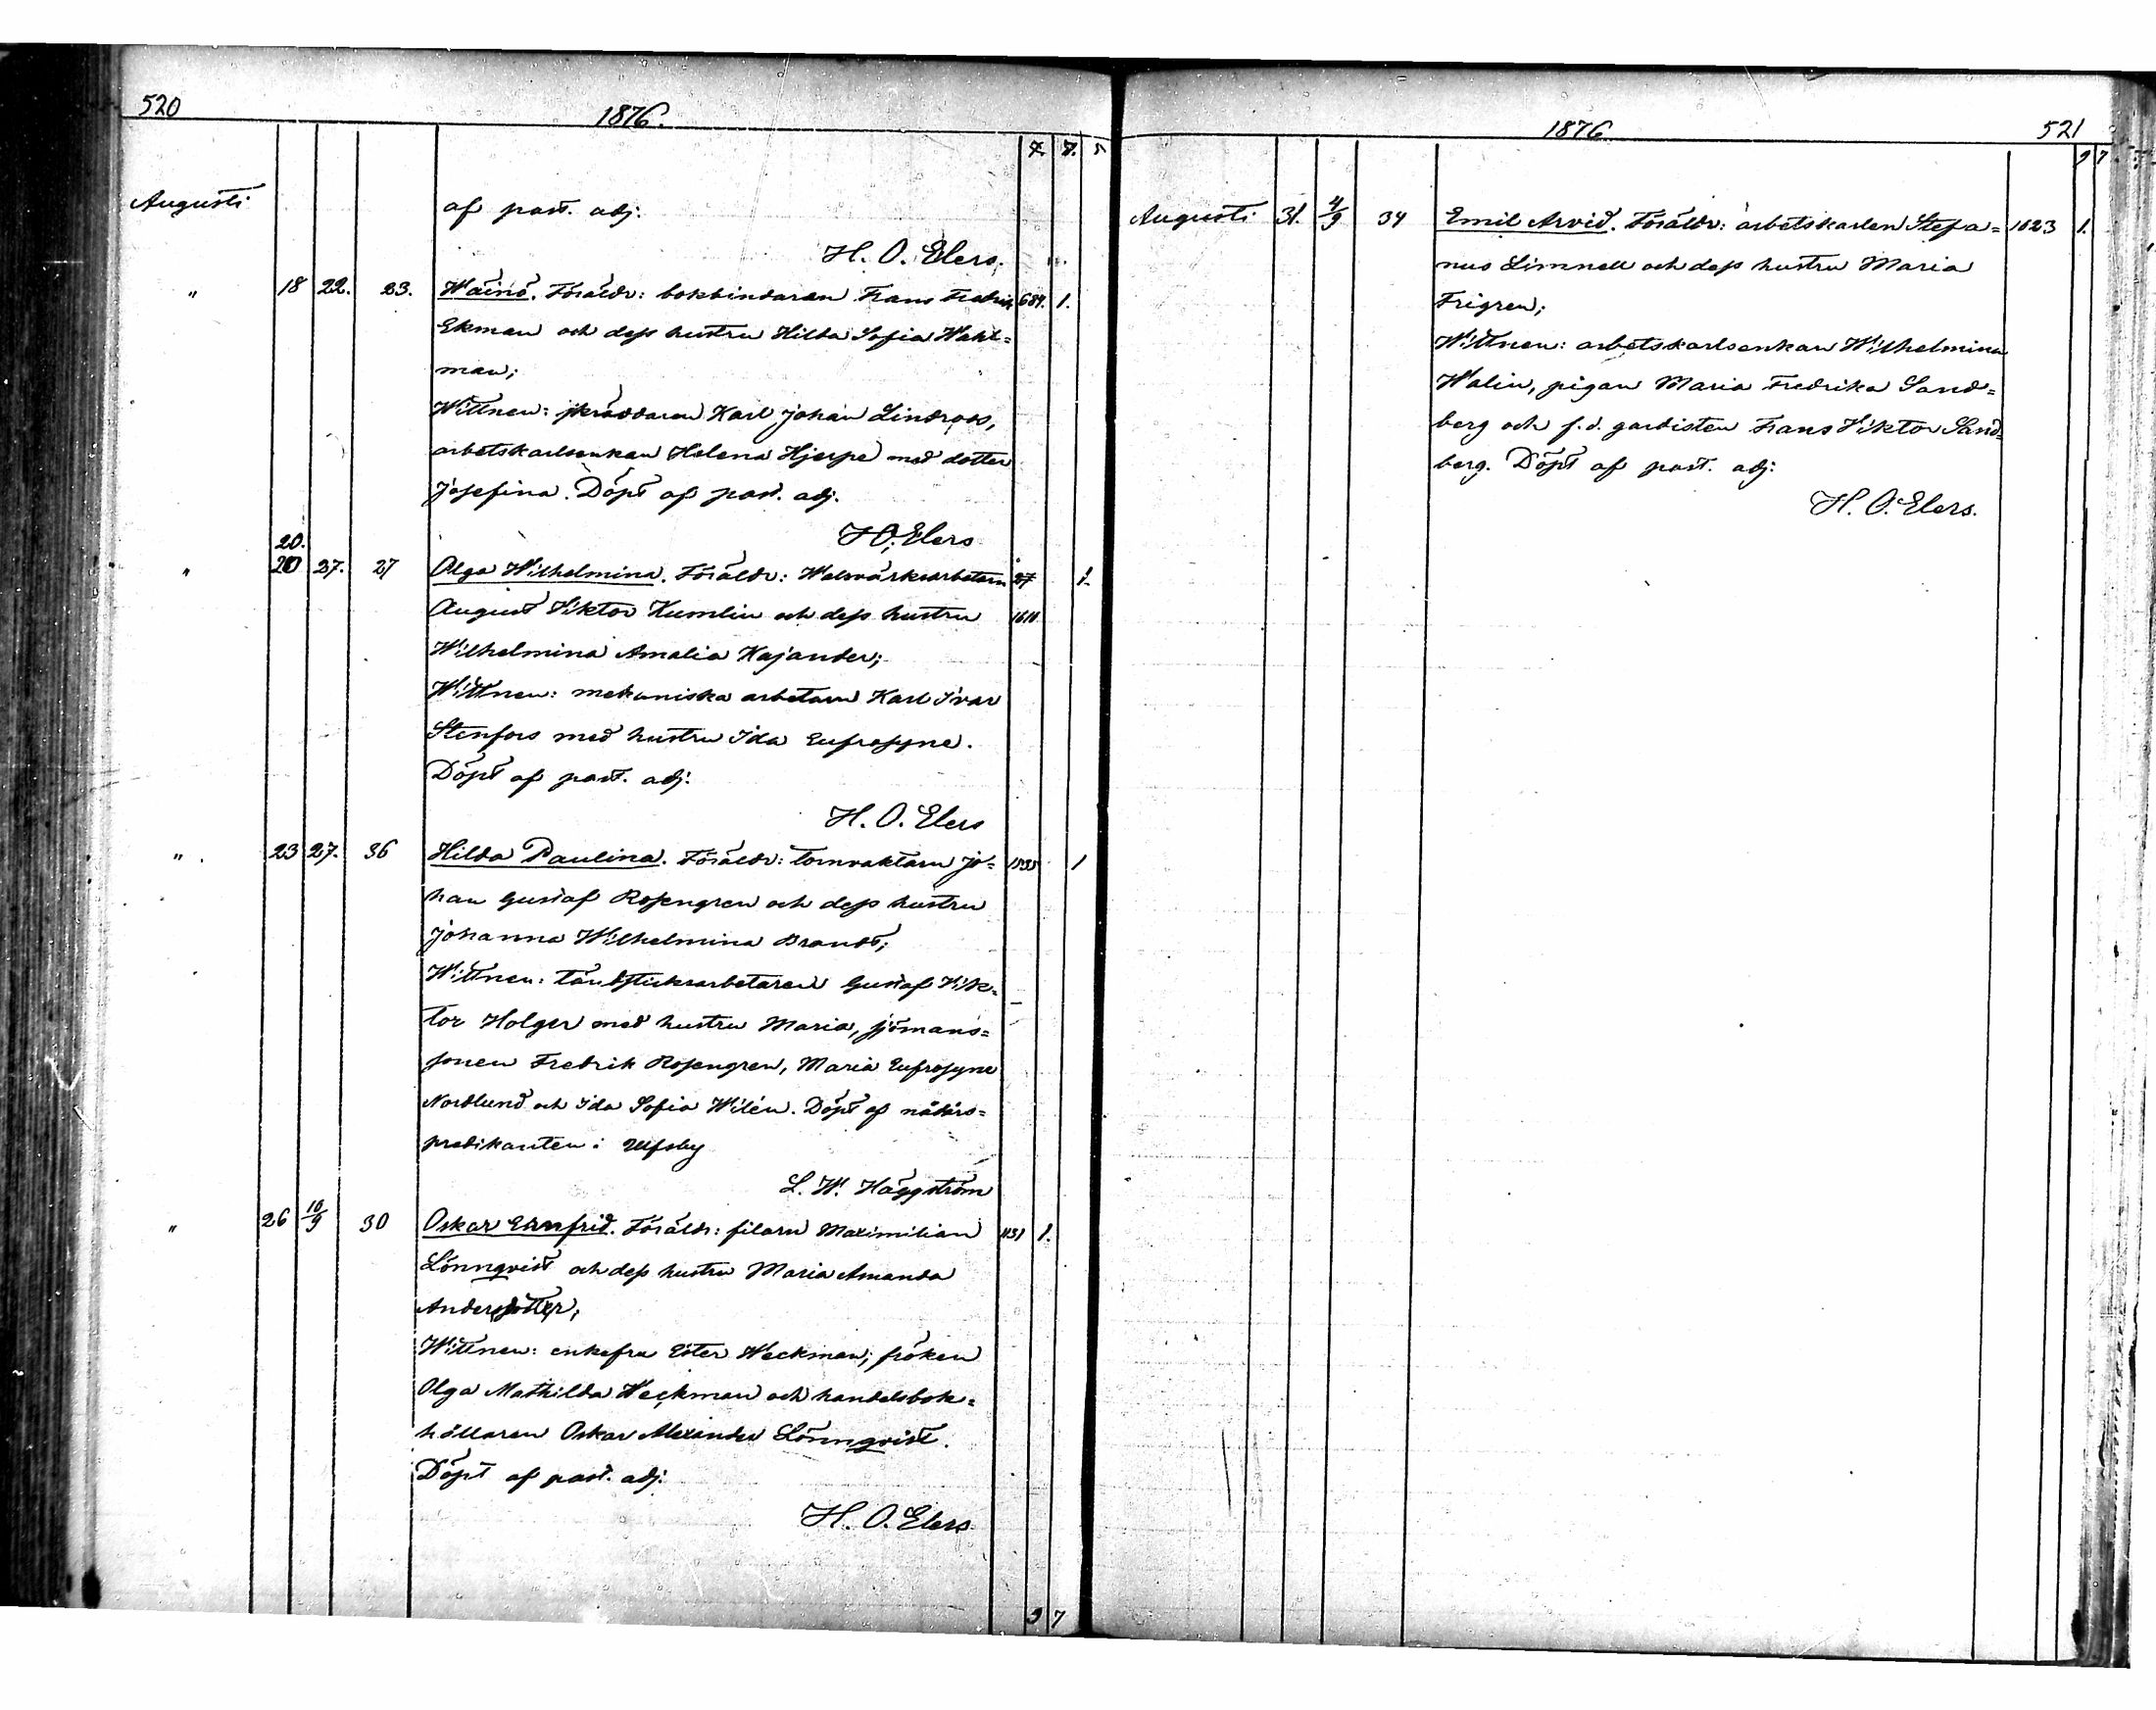 520
1876.
7. 7.
Augusti
af past. adj.
H. O. Elers.
" 18 22. 23. Wäinö. Föräldr: bokbindaren Frans Fredrik 684. 1.
Ekman och dess hustru Hilda Sofia Wahl=
man;
Wittnen: skräddaren Karl Johan Lindroos,
arbetskarlsenkan Helena Hjerpe med dotter
Josefina. Döpt af past. adj.
H. O. Elers
20.
" 20 27. 27 Olga Wilhelmina. Föräldr: Walsverksarbetarn 27 1.
August Viktor Kumlin och dess hustru 1610
Wilhelmina Amalia Kajander;
Wittnen: mekaniska arbetarn Karl Ivar
Stenfors med hustru Ida Eufrosyne.
Döpt af past. adj.
H. O. Elers
" 23 27. 36 Hilda Paulina. Föräldr: tornvaktarn Jo= 1535 1
han Gustaf Rosengren och dess hustru
Johanna Wilhelmina Brandt;
Wittnen: tändsticksarbetaren Gustaf Vik=
tor Holger med hustru Maria, sjömans=
sonen Fredrik Rosengren, Maria Eufrosyne
Nordlund och Ida Sofia Wilén. Döpt af nådårs=
predikanten i Ulfsby
L. W. Häggström
" 26 10/9 30 Oskar Ernfrid. Föräldr: filarn Maximilian 1131 1.
Lönnqvist och dess hustru Maria Amanda
Andersdotter;
Wittnen: enkefru Ester Weckman, fröken
Olga Mathilda Weckman och handelsbok=
hållaren Oskar Alexander Lönnqvist.
Döpt af past. adj.
H. O. Elers
9 7
1876
521
9 7
Augusti 31. 4/9 34 Emil Arvid. Föräldr: arbetskarlen Stefa= 1623 1.
nus Limnell och dess hustru Maria
Frigren;
Wittnen: arbetskarlsenkan Wilhelmina
Walin, pigan Maria Fredrika Sand=
berg och f.d. gardisten Frans Viktor Sand=
berg. Döpt af past. adj:
H. O. Elers.